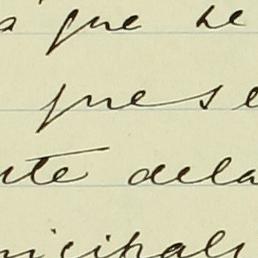 que se
que se
te dela
nicipals